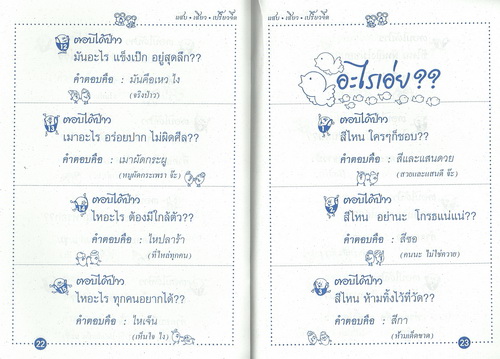 แสบ • เสียว • เปรี้ยวจี๊ด
ตอบได้ป่าว
12
มันอะไร แข็งเป๊ก อยู่สุดลึก??
คำตอบคือ : มันคือเหว ไง
(จริงป่าว)
ตอบได้ป่าว
13
เมาอะไร อร่อยปาก ไม่ผิดศีล??
คำตอบคือ : เมาผัดกระผู
(หมูผัดกระเพรา จ๊ะ)
ตอบได้ป่าว
14
ไหอะไร ต้องมีใกล้ตัว??
คำตอบคือ : ไหปลาร้า
(ที่ไหล่ทุกคน)
ตอบได้ป่าว
15
ไหอะไร ทุกคนอยากได้??
คำตอบคือ : ไหเจ็น
(เห็นใจ ไง)
22
แสบ • เสียว • เปรี้ยวจี๊ด
อะไรเอ่ย??
ตอบได้ป่าว
1
สีไหน ใครๆก็ชอบ??
คำตอบคือ : สีและแสนดวย
(สวยและแสนดี จ๊ะ)
ตอบได้ป่าว
2
สีไหน อย่านะ โกรธแน่แน่??
คำตอบคือ : สีซอ
(คนนะ ไม่ใช่ควาย)
ตอบได้ป่าว
3
สีไหน ห้ามทิ้งไว้ที่วัด??
คำตอบคือ : สีกา
(ห้ามเด็ดขาด)
23